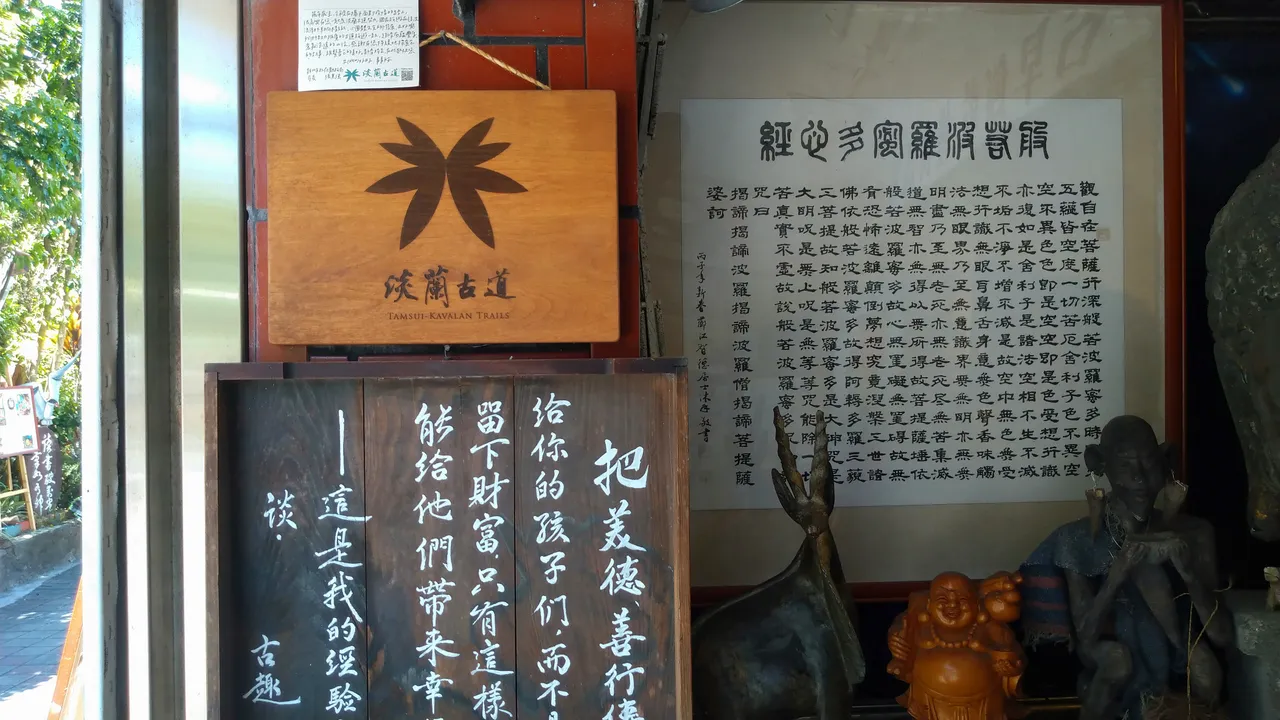 淡蘭古道
淡蘭古道
TAMSUI-KAVALAN TRAILS
把美德、善行
給你的孩子们,而不
留下財富,只有這樣
能給他們帶来幸
—這是我的經驗
談.
古趣
般若波羅蜜多心經
觀自在菩薩行深般若波羅蜜多時
五蘊皆空度一切苦厄舍利子色不異空
空不異色色即是空空即是色受想行識
亦復如是舍利子是諸法空相不生不滅
不垢不淨不增不減是故空中無色無受
想行識無眼耳鼻舌身意無色聲香味觸
法無眼界乃至無意識界無無明亦無無
明盡乃至無老死亦無老死盡無苦集滅
道無智亦無得以無所得故菩提薩埵依
般若波羅蜜多故心無罣礙無罣礙故無
有恐怖遠離顛倒夢想究竟涅槃三世諸
佛依般若波羅蜜多故得阿耨多羅三藐
三菩提故知般若波羅蜜多是大神咒是
大明咒是無上咒是無等等咒能除一
苦真實不虛故說般若波羅蜜多
咒曰
揭諦揭諦波羅揭諦波羅僧揭諦菩提薩
婆訶